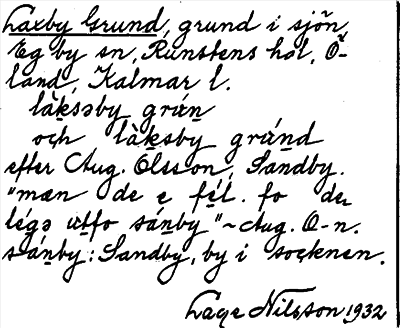 Laxby Grund, grund i sjön,
Eg by sn, Runstens hd, Ö-
land, Kalmar l.
làksəby grún
och làksby grúnd
efter Aug. Olsson, Sandby.
"mæn de e fél. fo de
légə utfo sánby" ~ Aug. O-n.
sánby: Sandby, by i socknen.
Lage Nilsson 1932